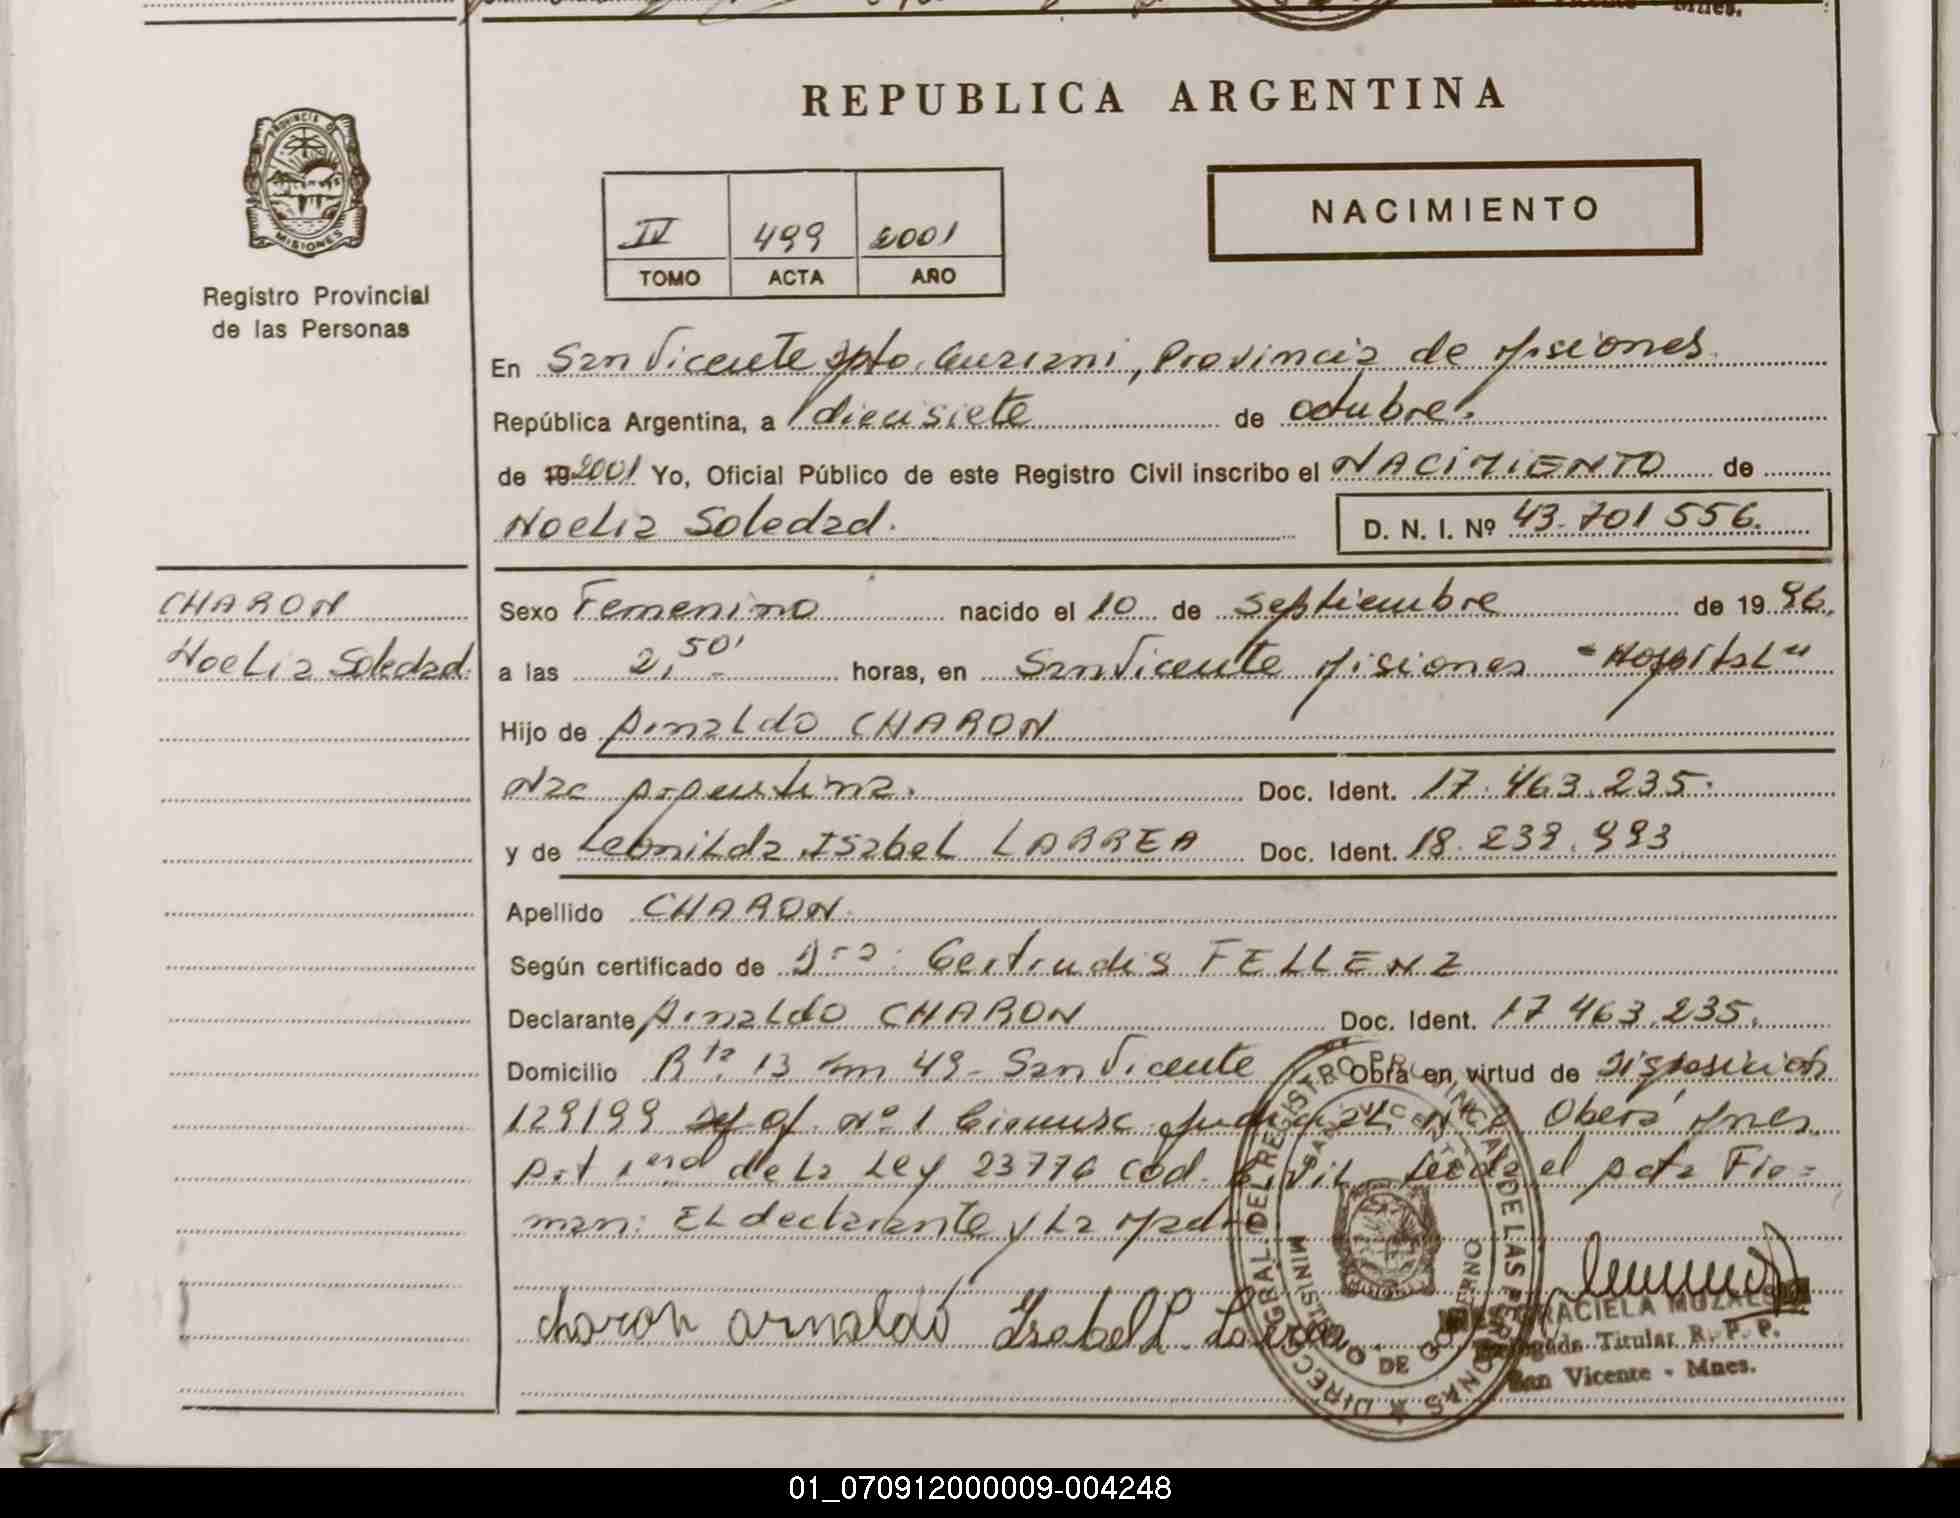 REPUBLICA ARGENTINA
PROVINCIA DE
MISIONES
Registro Provincial
de las Personas
IV 499 2001
TOMO ACTA AÑO
NACIMIENTO
En San Vicente Dpto. Guarani, Provincia de Misiones
República Argentina, a diecisiete de octubre.
de 19 2001 Yo, Oficial Público de este Registro Civil inscribo el NACIMIENTO de
Noelia Soledad. D. N. I. Nº 43.701556.
CHARON
Noelia Soledad.
Sexo Femenino nacido el 10 de septiembre de 19 96.
a las 2,50' horas, en San Vicente Misiones "Hospital"
Hijo de Arnaldo CHARON
Nac Argentina. Doc. Ident. 17.463.235.
y de Leonilda Isabel LARREA Doc. Ident. 18.239.993
Apellido CHARON
Según certificado de Dra: Gertrudis FELLENZ
Declarante Arnaldo CHARON Doc. Ident. 17 463.235.
Domicilio Rta. 13 Km 49 - San Vicente Obra en virtud de Disposición
129199 Nº 1 Judicial Nº 2 Oberá Mnes.
Art 1ero de la Ley 23776 Cod. Civil. Leida el Acta Fir=
man: EL declarante y La Madre
charon arnaldo Isabel L. Larrea
DIRECC. GRAL. DEL REGISTRO PROVINCIAL DE LAS PERSONAS
SAN VICENTE
MINISTERIO DE GOBIERNO
GRACIELA
Delegada Titular R. P. P.
San Vicente - Mnes.
01_070912000009-004248